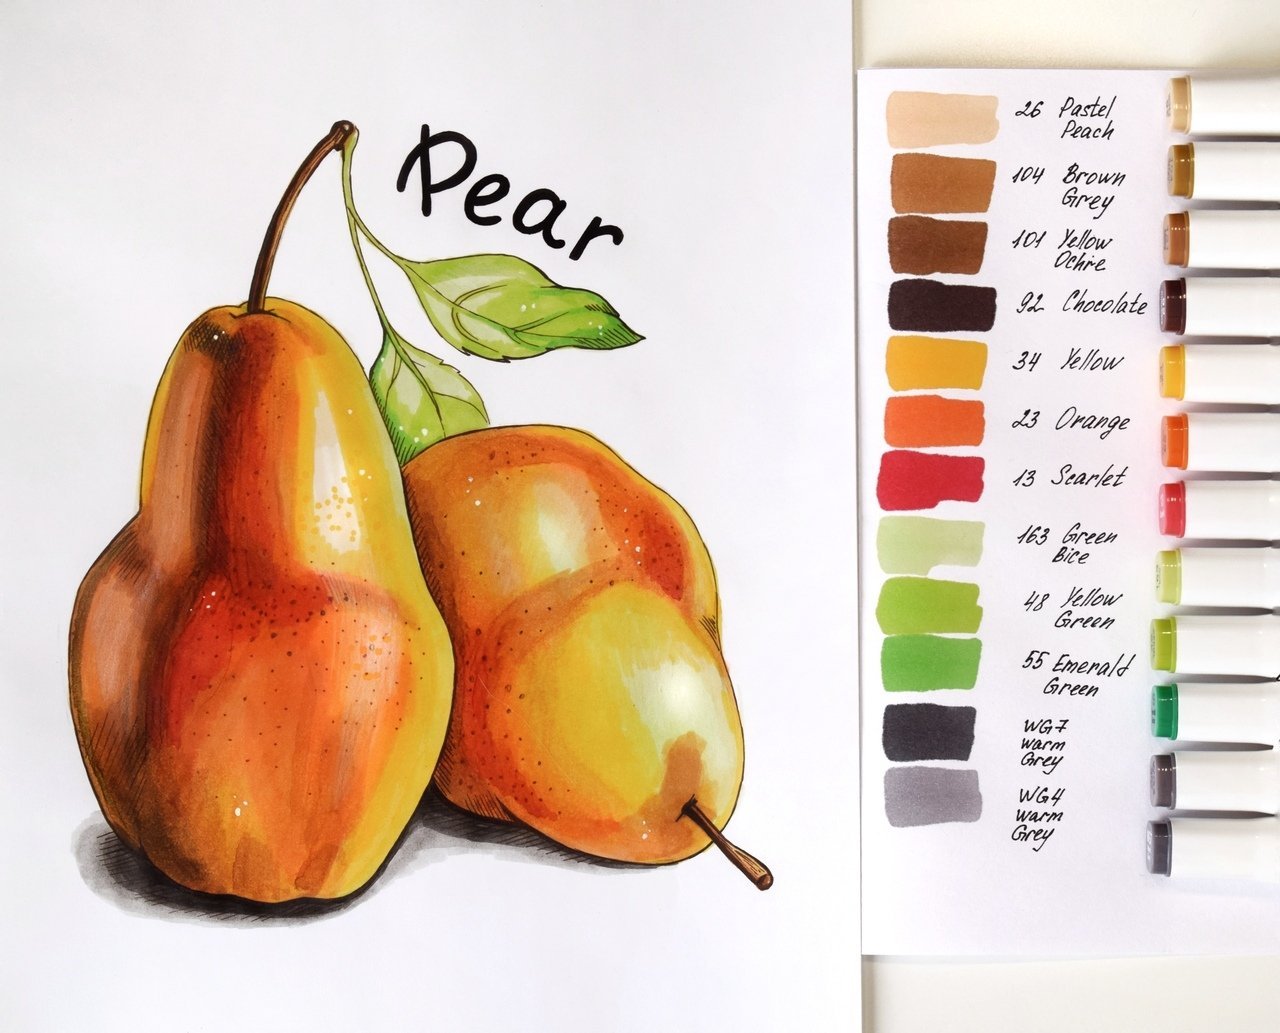 Pear
26 Pastel
Peach
104 Brown
Grey
101 Yellow
Ochre
92 Chocolate
34 Yellow
23 Orange
13 Scarlet
163 Green
Bice
48 Yellow
Green
55 Emerald
Green
WG7
warm
Grey
WG4
warm
Grey